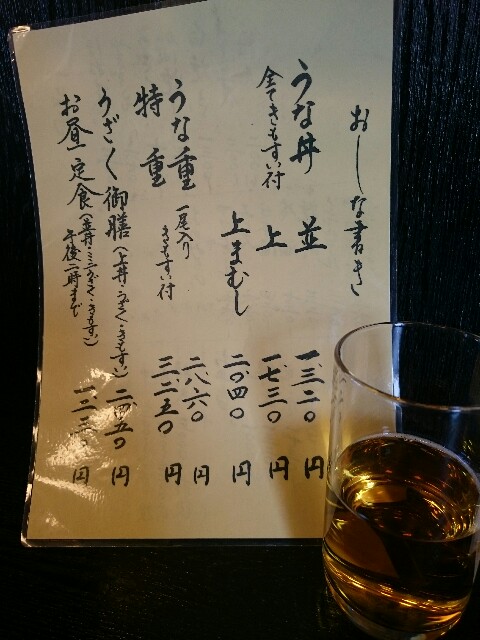 おしな書き
うな丼 並 一、三二〇円
全てきもすい付 上 一、七三〇円
上まむし 二、〇四〇円
うな重 二、八六〇円
特重 一尾入り きもすい付 三、二五〇円
うざく御膳(上丼・うざく・きもすい) 二、四五〇円
お昼定食(並丼・ミニうざく・きもすい) 午後二時まで 一、二三〇円